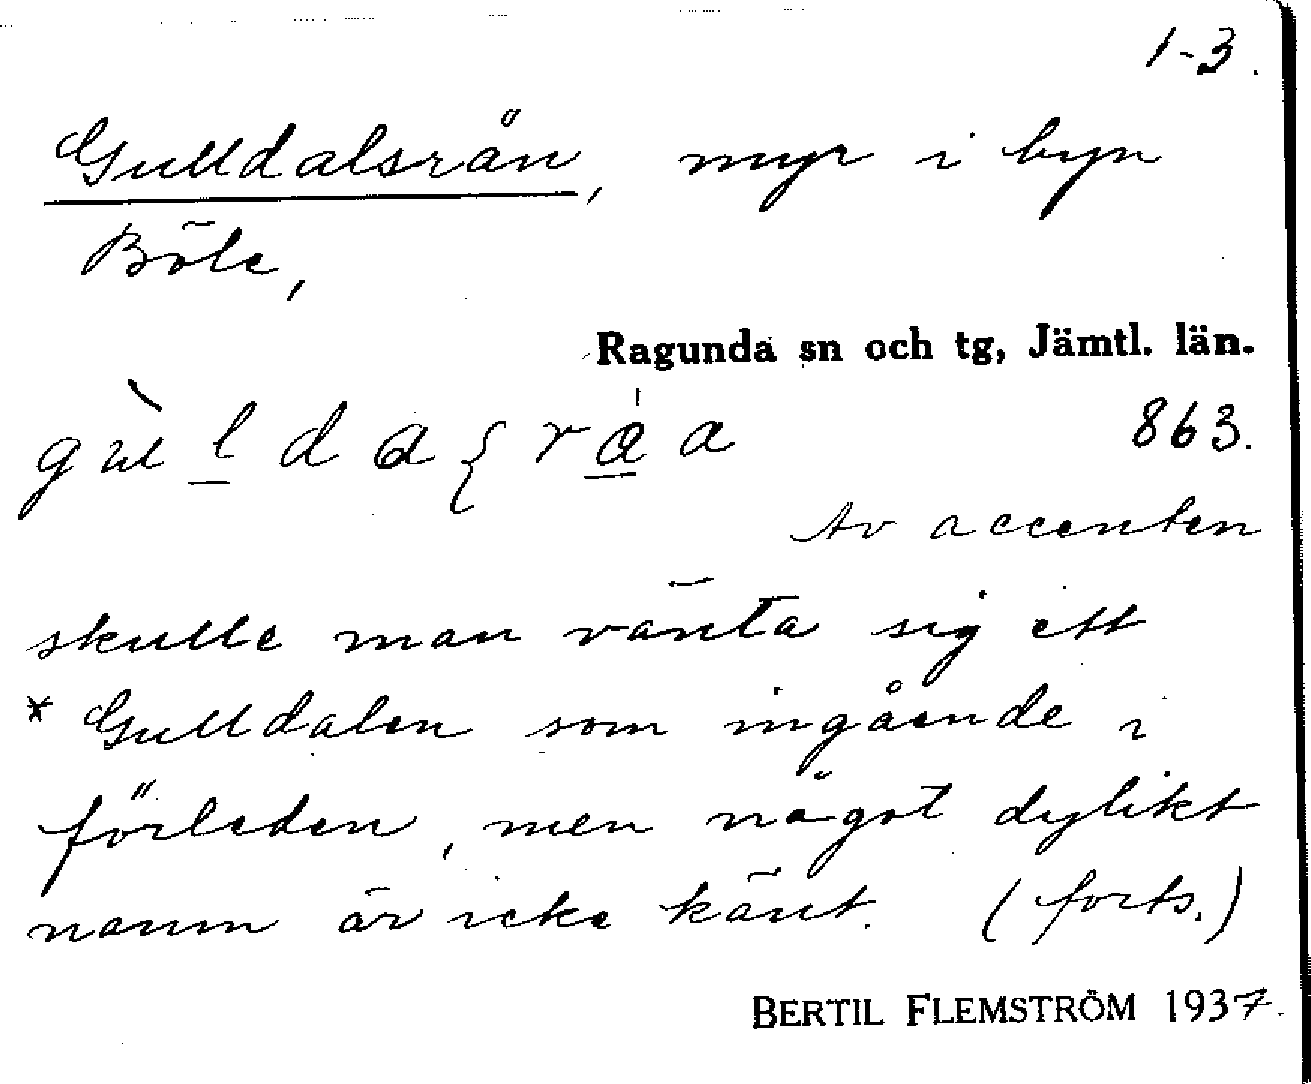 1-3.
Gulldalsrån, myr i byn
Böle,
Ragunda sn och tg, Jämtl. län.
863.
Av accenten
skulle man vänta sig ett
* Gulldalen som ingående i
förleden, men något dylikt
namn är icke känt. (forts.)
BERTIL FLEMSTRÖM 1937.